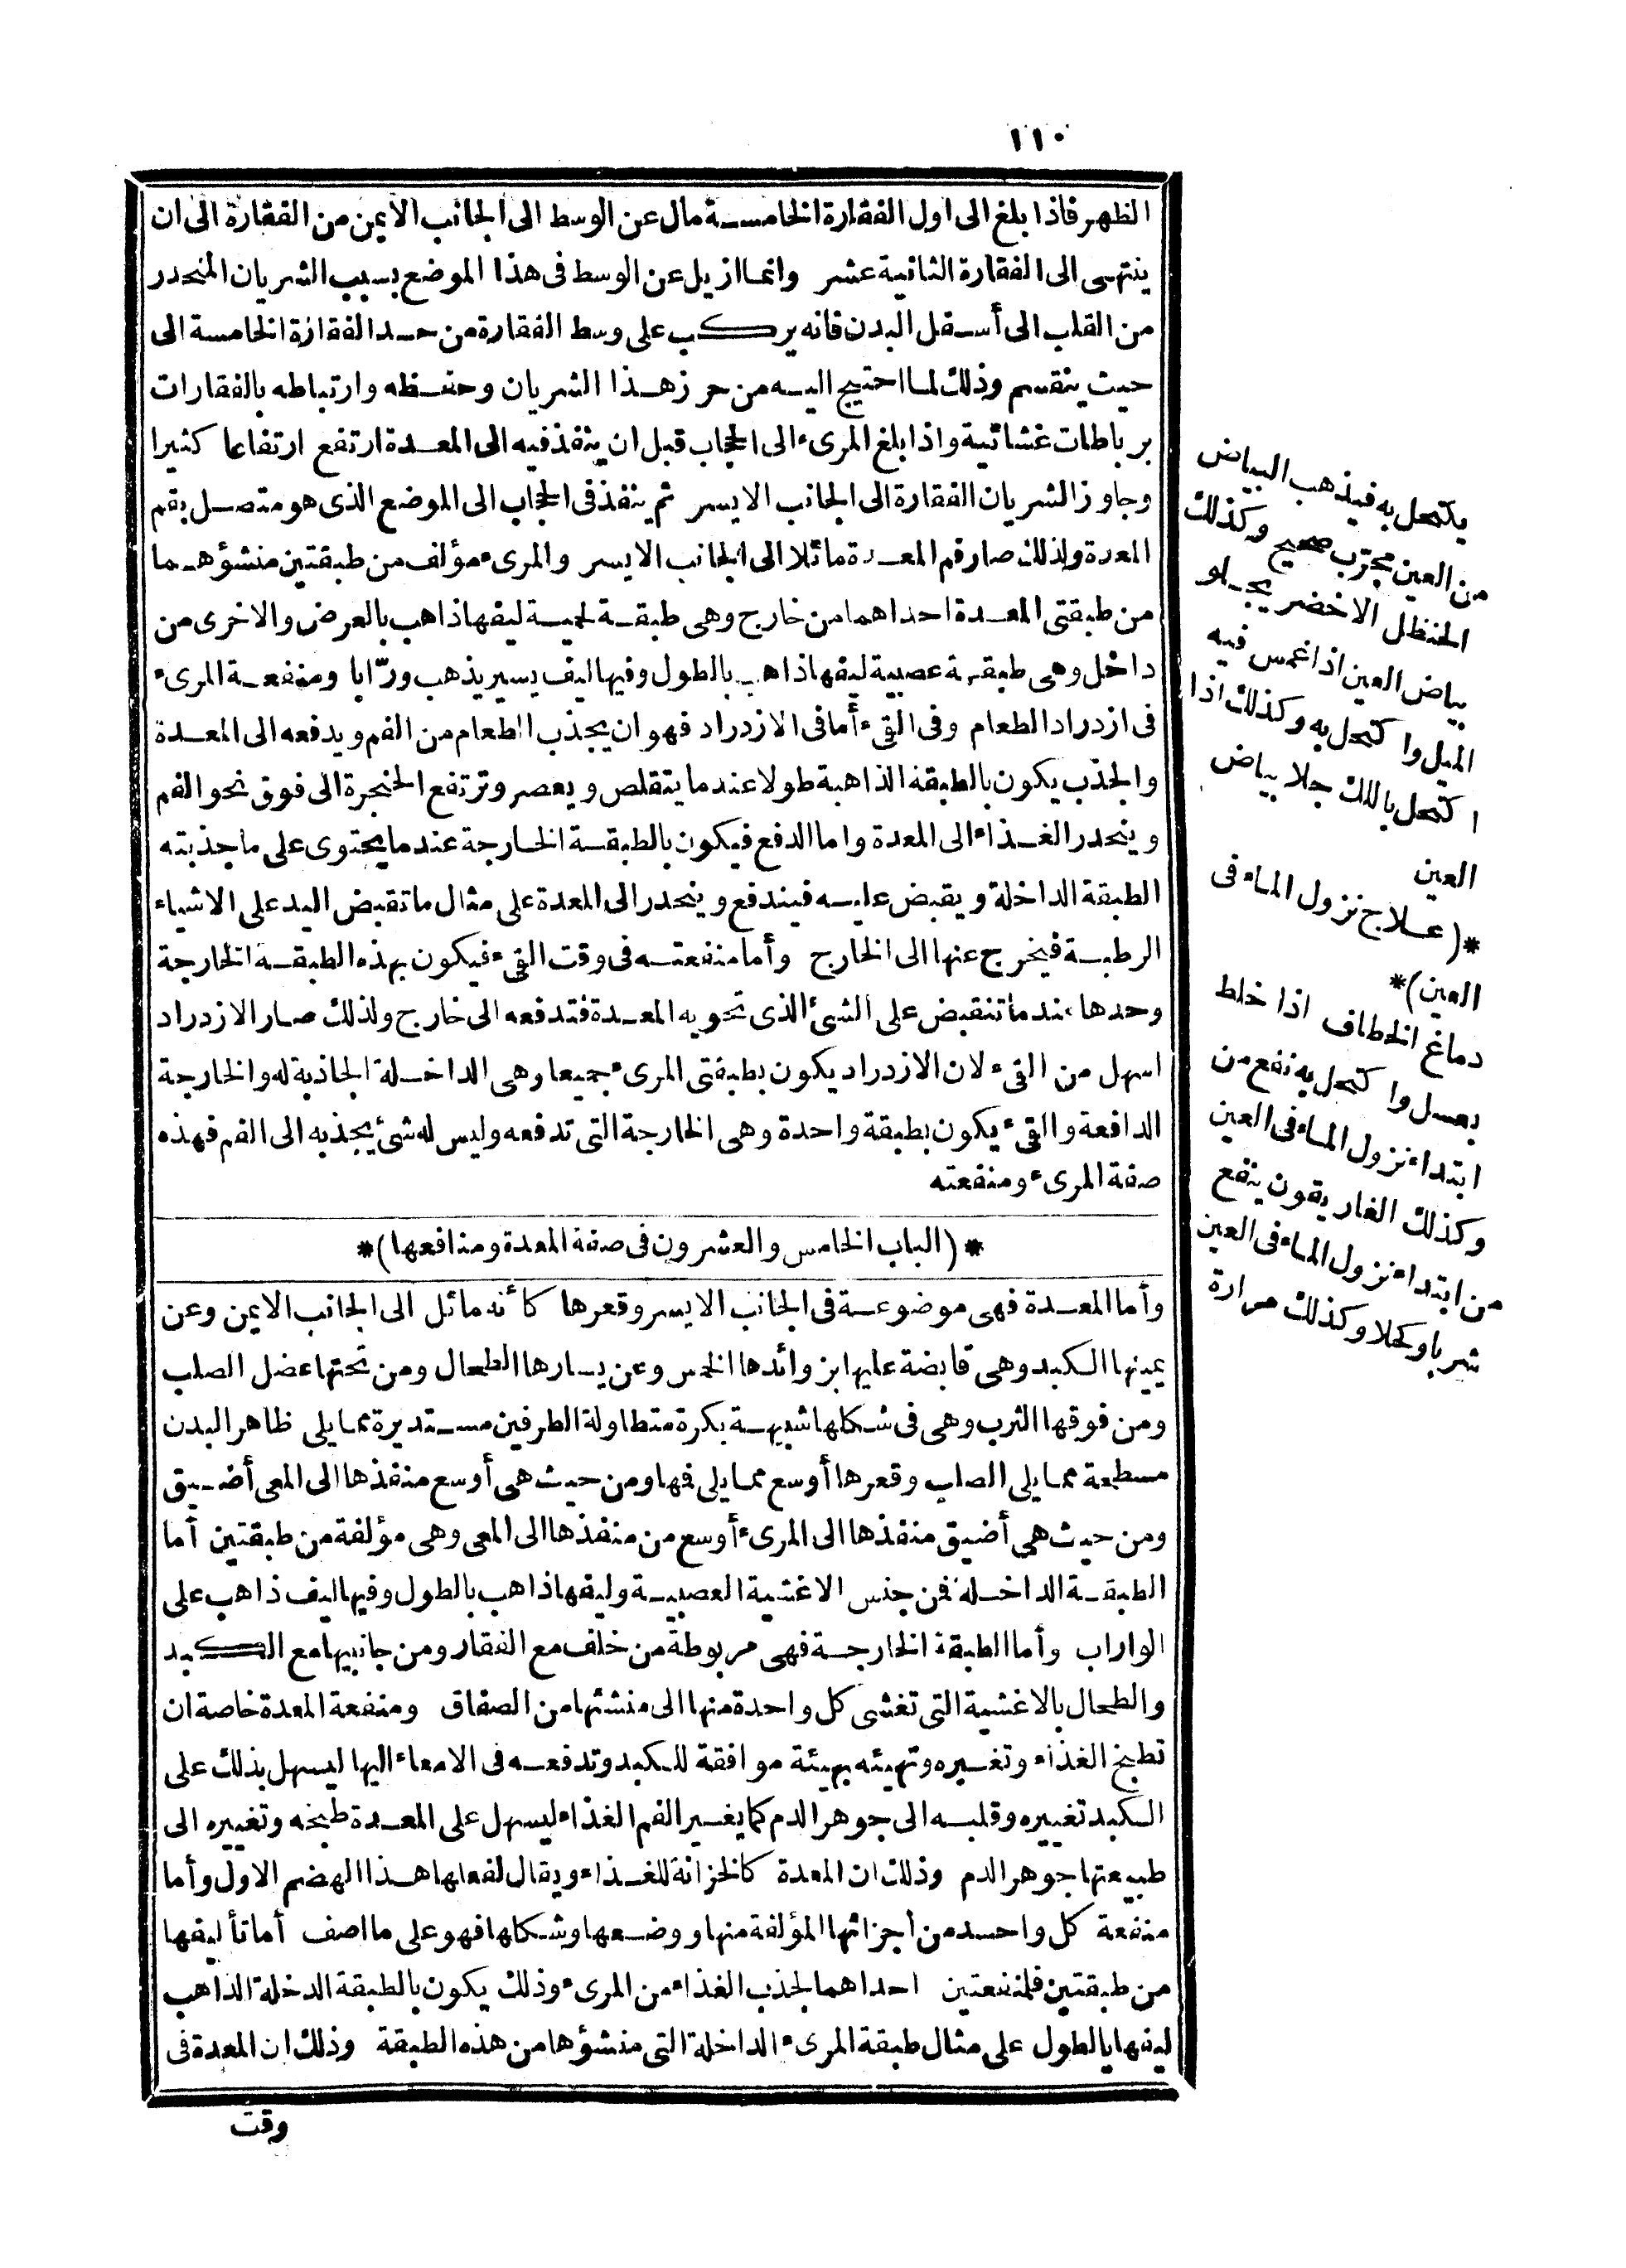 ١١٠
الظهر فاذا بلغ الى اول الفقارة الخامسة مال عن الوسط الى الجانب الايمن من الفقارة الى ان
ينتهى الى الفقارة الثانية عشر وانما ازيل عن الوسط فى هذا الموضع بسبب الشريان المنحدر
من القلب الى أسفل البدن فانه يركب على وسط الفقارة من حد الفقارة الخامسة الى
حيث ينقسم وذلك لما احتيج اليه من حرز هذا الشريان وحفظه وارتباطه بالفقارات
برباطات غشائية واذا بلغ المرىء الى الحجاب قبل ان ينفذ فيه الى المعدة ارتفع ارتفاعا كثيرا
وجاوز الشريان الفقارة الى الجانب الايسر ثم ينفذ فى الحجاب الى الموضع الذى هو متصل بفم
المعدة ولذلك صار فم المعدة مائلا الى الجانب الايسر والمرىء مؤلف من طبقتين منشؤهما
من طبقتى المعدة احداهما من خارج وهى طبقة لحمية ليفها ذاهب بالعرض والاخرى من
داخل وهى طبقة عصبية ليفها ذاهب بالطول وفيها ليف يسير يذهب ورّابا ومنفعة المرىء
فى ازدراد الطعام وفى القىء أما فى الازدراد فهو ان يجذب الطعام من الفم ويدفعه الى المعدة
والجذب يكون بالطبقة الذاهبة طولا عندما يتقلص ويعصر وترتفع الحنجرة الى فوق نحو الفم
وينحدر الغذاء الى المعدة واما الدفع فيكون بالطبقة الخارجة عندما يحتوى على ما جذبته
الطبقة الداخلة ويقبض عليه فيندفع وينحدر الى المعدة على مثال ما تقبض اليد على الاشياء
الرطبة فيخرج عنها الى الخارج وأما منفعته فى وقت القىء فيكون بهذه الطبقة الخارجة
وحدها عند ما تنقبض على الشئ الذى تحويه المعدة فتدفعه الى خارج ولذلك صار الازدراد
اسهل من القىء لان الازدراد يكون بطبقتى المرىء جميعا وهى الداخلة الجاذبة له والخارجة
الدافعة والقىء يكون بطبقة واحدة وهى الخارجة التى تدفعه وليس له شئ يجذبه الى الفم فهذه
صفة المرىء ومنفعته
*(الباب الخامس والعشرون فى صفة المعدة ومنافعها)*
وأما المعدة فهى موضوعة فى الجانب الايسر وقعرها كأنه مائل الى الجانب الايمن وعن
يمينها الكبد وهى قابضة عليها بزوائدها الخمس وعن يسارها الطحال ومن تحتها عضل الصلب
ومن فوقها الثرب وهى فى شكلها شبيهة بكرة متطاولة الطرفين مستديرة مما يلى ظاهر البدن
مسطحة مما يلى الصلب وقعرها أوسع مما يلى فها ومن حيث هى أوسع منفذها الى المعى أضيق
ومن حيث هى أضيق منفذها الى المرىء أوسع من منفذها الى المعى وهى مؤلفة من طبقتين أما
الطبقة الداخلة فمن جنس الاغشية العصبية وليفها ذاهب بالطول وفيها ليف ذاهب على
الواراب وأما الطبقة الخارجة فهى مربوطة من خلف مع الفقار ومن جانبيها مع الكبد
والطحال بالاغشية التى تغشى كل واحدة منها الى منشئها من الصفاق ومنفعة المعدة خاصة ان
تطبخ الغذاء وتغسيره وتهيئه بهيئة موافقة للكبد وتدفعه فى الامعاء اليها ليسهل بذلك على
الكبد تغييره وقلبه الى جوهر الدم كما يغير الفم الغذاء ليسهل على المعدة طبخه وتغييره الى
طبيعتها جوهر الدم وذلك ان المعدة كالخزانة للغذاء ويقال لفعلها هذا الهضم الاول وأما
منفعة كل واحد من أجزائها المؤلفة منها ووضعها وشكلها فهو على ما اصف أما تأليفها
من طبقتين فلمنفعتين احداهما لجذب الغذاء من المرىء وذلك يكون بالطبقة الدخلة الذاهب
ليفها بالطول على مثال طبقة المرىء الداخلة التى منشؤها من هذه الطبقة وذلك ان المعدة فى
وقت
يكتحل به فيذهب البياض
من العين مجرّب صحيح وكذلك
الحنظل الاخضر يجلو
بياض العين اذا غمس فيه
الميل واكتحل به وكذلك اذا
اكتحل باللك جلا بياض
العين
*(علاج نزول الماء فى
العين)*
دماغ الخطاف اذا خلط
بعسل واكتحل به نفع من
ابتداء نزول الماء فى العين
وكذلك الغاريقون ينفع
من ابتداء نزول الماء فى العين
شربا وكحلا وكذلك مرارة